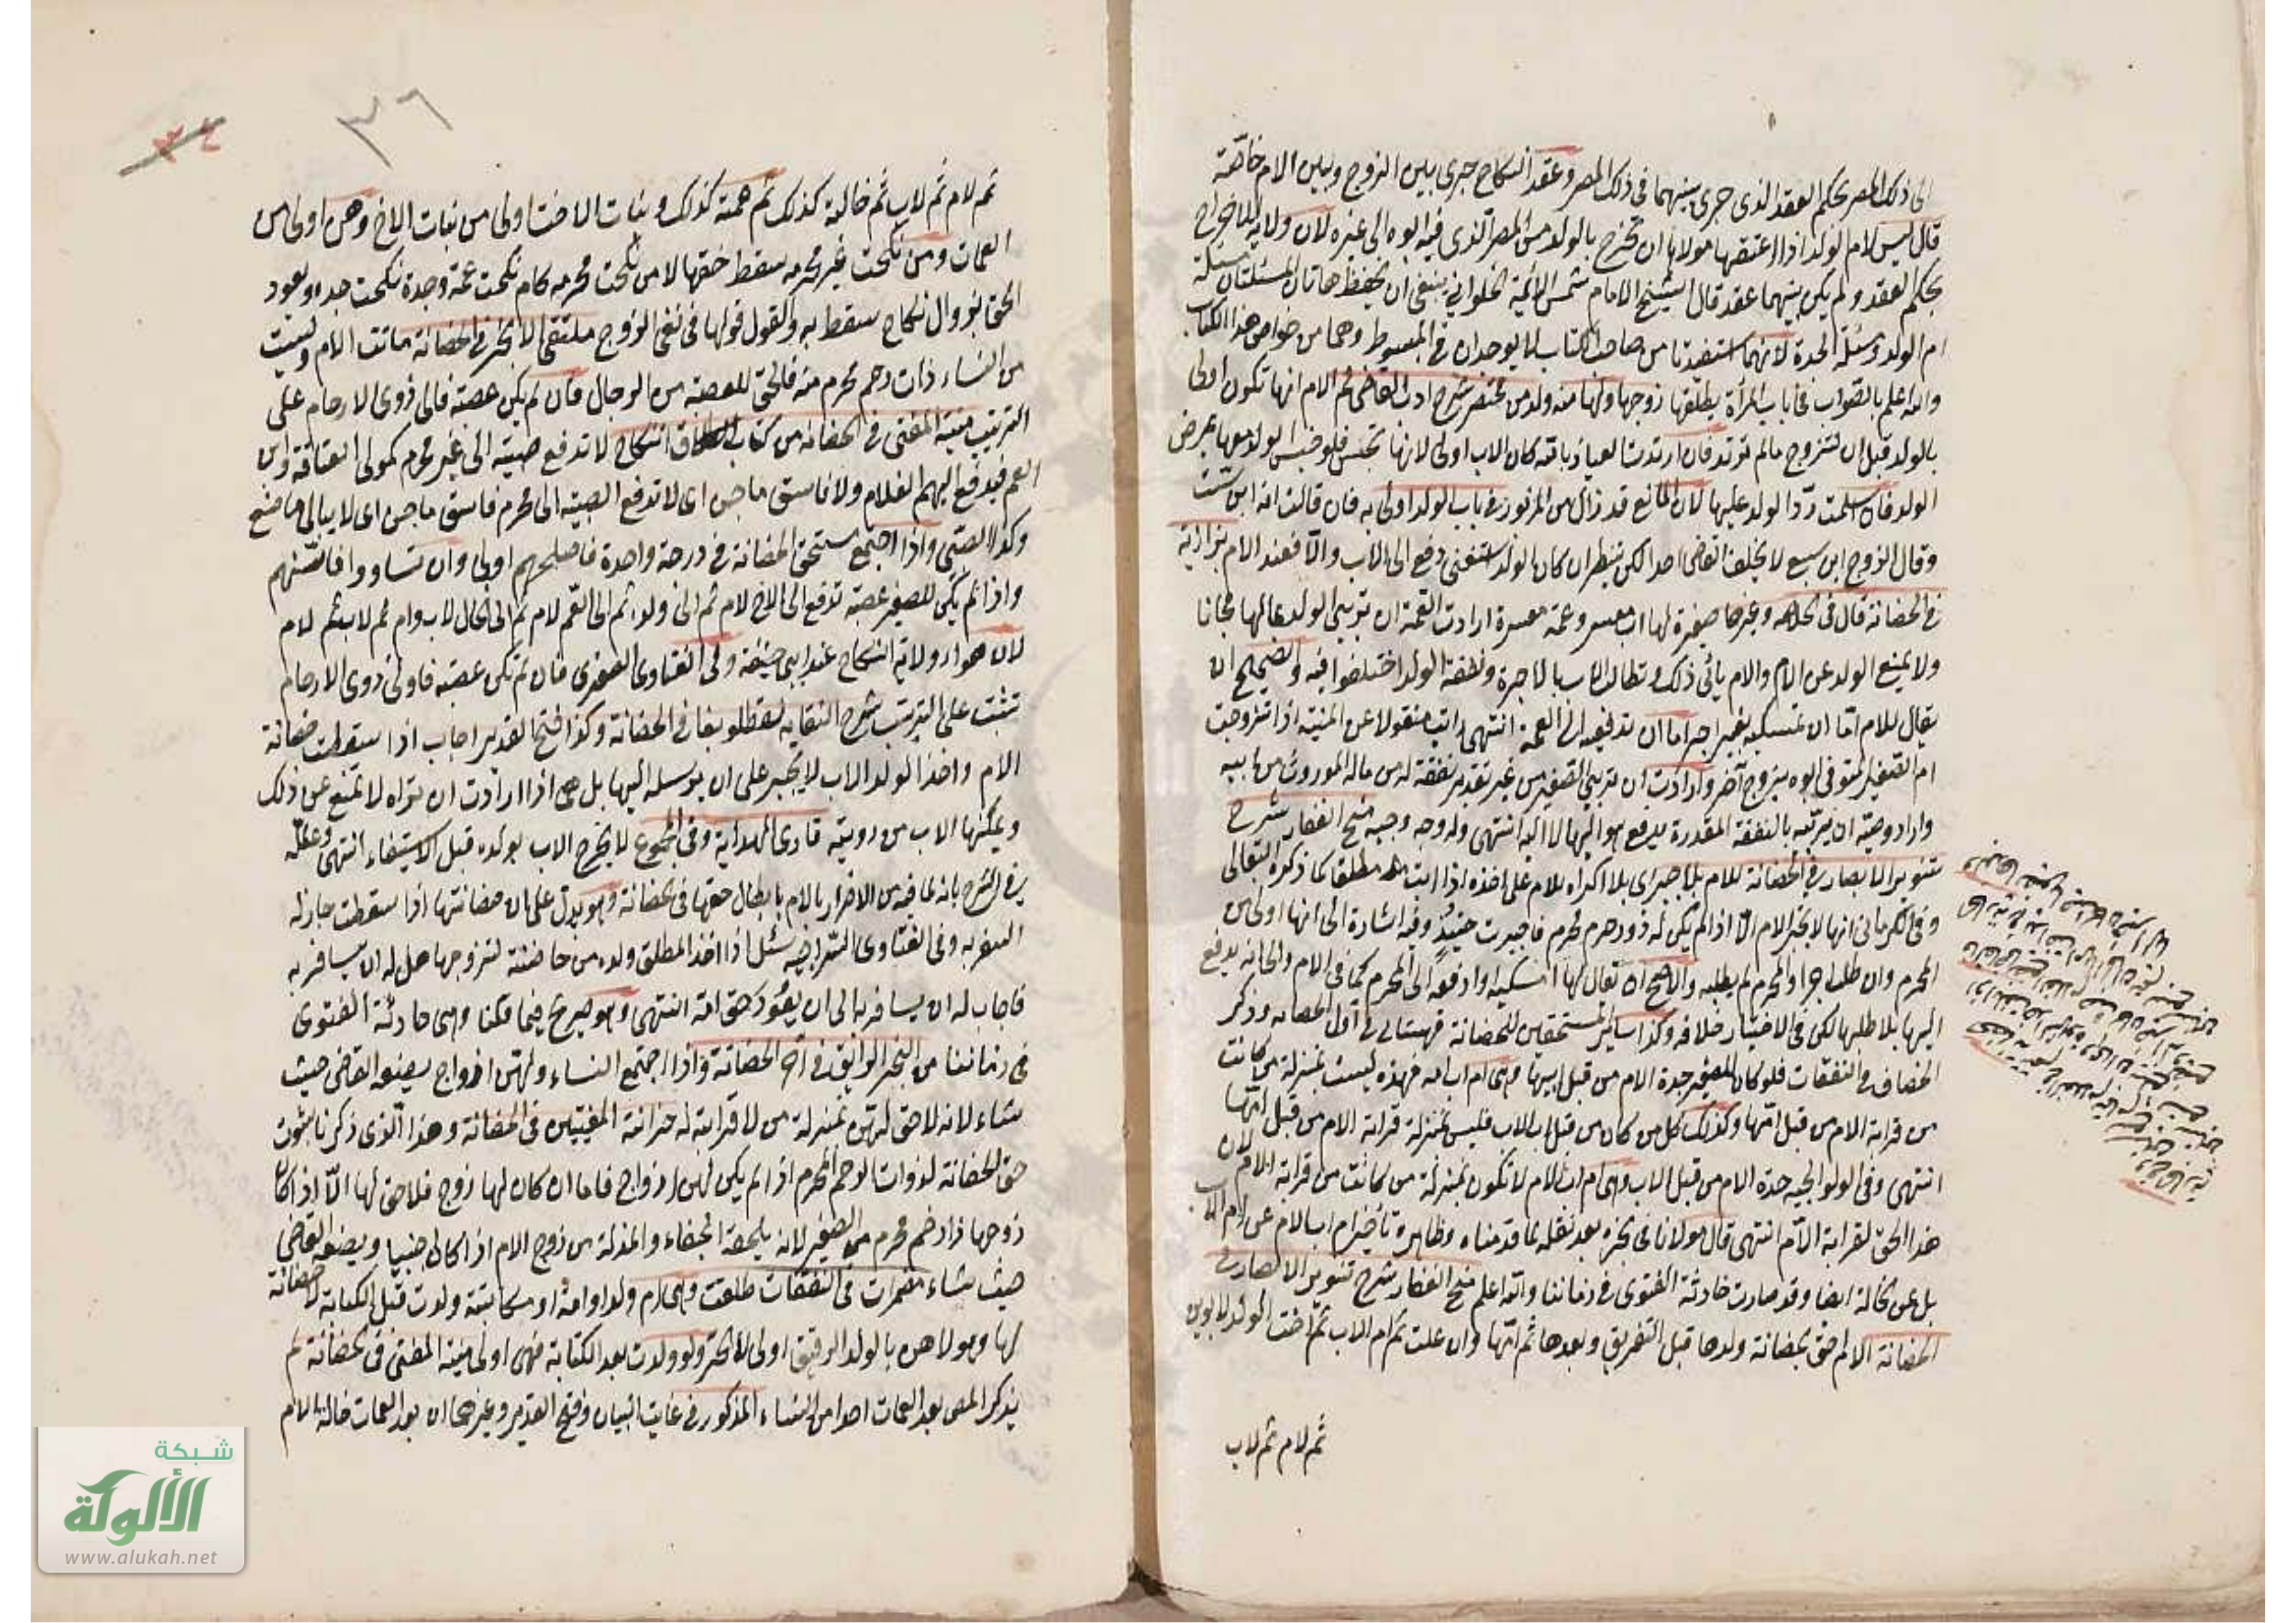 الى ذلك المصر بحكم العقد الذى جرى بينهما فى ذلك المصر وعقد النكاح جرى بين الزوج وبين الام خاصة
قال ليس لام الولد اذا اعتقها مولاها ان تخرج بالولد من المصر الذى فيه ابوه الى غيره لان ولاية الاخراج
بحكم العقد ولم يكن بينهما عقد قال الشيخ الامام شمس الائمة الحلوانى ينبغى ان يحفظ هاتان المسئلتان مسئلة
ام الولد ومسئلة الجدة لانهما استفيدتا من صاحب الكتاب لا يوجدان فى المبسوط وهما من خواص هذا الكتاب
والله اعلم بالصواب فى باب المرأة يطلقها زوجها ولها منه ولد من مختصر شرح ادب القاضى ثم الام انها تكون اولى
بالولد قبل ان تتزوج مالم ترتد فان ارتدت العياذ بالله كان الاب اولى لانها تحبس فلو حبس الولد معها يمرض
الولد فان اسلمت رد الولد عليها لان المانع قد زال من المزبور فى باب الولد اولى به فان قالت انه ابن ست
وقال الزوج ابن سبع لا يحلف القاضى احدا لكن ينظر ان كان الولد استغنى دفع الى الاب والا فعند الام بزازية
فى الحضانة قال فى الخلاصه وغيرها صغيرة لها اب معسر وعمة موسرة ارادت العمة ان تربى الولد بمالها مجانا
ولا يمنع الولد عن الام والام يأبى ذلك وتطالب الاب بالاجرة ونفقة الولد اختلفوا فيه والصحيح ان
يقال للام اما ان تمسكيه بغير اجر اما ان تدفعيه الى العمة انتهى رايت منقولا عن المنية اذا تزوجت
ام الصغير المتوفى ابوه بزوج آخر وارادت ان تربى الصغير من غير تقدير نفقة له من ماله الموروث من ابيه
واراد وصيه ان يربيه بالنفقة المقدرة يدفع هو اليها لا اليه انتهى وله وجه وجيه منح الغفار شرح
تنوير الابصار فى الحضانة للام بلا جبر اى بلا اكراه للام على اخذه اذا ابت مطلقا كما ذكره البقالى
وفى الكرمانى انها لا تجبر الام الا اذا لم يكن له ذو رحم محرم فاجبرت حينئذ وفيه اشارة الى انها اولى من
المحرم وان طلب اجرا والمحرم لم يطلبه والاصح ان يقال لها امسكيه او ادفعه الى المحرم كما فى الام والخانه يدفع
اليها بلا طلبها لكن فى الاختيار خلافه وكذا سائر المستحقين للحضانة قهستانى فى اول الحضانه وذكر
الخصاف فى النفقات فلو كان للصغير جدة الام من قبل ابيها وهى ام اب امه فهذه ليست بمنزلة من كانت
من قرابة الام من قبل امها وكذلك كل من كان من قبل اب الاب فليس بمنزلة قرابة الام من قبل امها
انتهى وفى الولوالجيه جدة الام من قبل الاب وهى ام اب الام لا تكون بمنزلة من كانت من قرابة الام لان
هذا الحق لقرابة الام انتهى قال مولانا فى بحره بعد نقله لما قدمناه وظاهره تأخير ام اب الام عن ام الاب
بل عن الخالة ايضا وقد صارت حادثة الفتوى فى زماننا والله اعلم منح الغفار شرح تنوير الابصار فى
الحضانة الام احق بحضانة ولدها قبل التفريق وبعدها ثم امها وان علت ثم ام الاب ثم اخت الولد لابوين
ثم لام ثم لاب
٣٦
٣٤
ثم لام ثم لاب ثم خالته كذلك ثم عمته كذلك وبنات الاخت اولى من بنات الاخ وهن اولى من
العمات ومن نكحت غير محرمه سقط حقها لا من نكحت محرمه كام نكحت عمه وجدة نكحت جده ويعود
الحق بزوال نكاح سقط به والقول قولها فى نفى الزوج ملتقى الابحر فى الحضانة ماتت الام وليست
من النساء ذات رحم محرم منه فالحق للعصبة من الرجال فان لم يكن عصبة فالى ذوى الارحام على
الترتيب منية المفتى فى الحضانه من كتاب النكاح لا تدفع صبية الى غير محرم كمولى العتاقة وابن
العم فيدفع اليهم الغلام ولا فاسق ماجن اى لا تدفع الصبيه الى محرم فاسق ماجن اى لا يبالى ما صنع
وكذا الصبى واذا اجتمع مستحق الحضانة فى درجة واحدة فاصلحهم اولى وان تساووا فاسنهم
واذا لم يكن للصغير عصبة تدفع الى الاخ لام ثم الى ولده ثم الى العم لام ثم الى الخال لاب وام ثم لاب ثم لام
لان هؤلاء ولاية النكاح عند ابى حنيفة وفى الفتاوى الصغرى فان لم تكن عصبة فاولى ذوى الارحام
تثبت على الترتيب شرح النقايه لقطلوبغا فى الحضانة وكذا فتح القدير اجاب اذا سقطت حضانة
الام واخذ الولد الاب لا يجبر على ان يرسله اليها بل هى اذا ارادت ان تراه لا تمنع عن ذلك
ويمكنها الاب من رويته قارى الهداية وفى المجموع لا يخرج الاب بولده قبل الاستغناء انتهى وعلله
فى الشرح بانه لما فيه من الاضرار بالام بابطال حقها فى الحضانة وهو يدل على ان حضانتها اذا سقطت جاز له
السفر به وفى الفتاوى السراجيه سئل اذا اخذ المطلق ولده من حاضنته لتزوجها هل له ان يسافر به
فاجاب له ان يسافر به الى ان يعود حق امه انتهى وهو صريح فيما قلنا وهى حادثة الفتوى
فى زماننا من البحر الرائق فى الحضانة واذا اجتمع النساء ولهن ازواج يضعه القاضى حيث
يشاء لانه لا حق لهن بمنزلة من لا قرابة له خزانة المفتيين فى الحضانة وهذا الذى ذكرنا ثبوت
حق الحضانة لذوات الرحم المحرم اذا لم يكن لهن ازواج فاما ان كان لها زوج فلا حق لها الا اذا كان
زوجها ذا رحم محرم من الصغير لانه يلحقه الجفاء والمذلة من زوج الام اذا كان اجنبيا ويضعه القاضى
حيث شاء مضمرات فى النفقات طلقت وهى ام ولد او امة او مكاتبة ولدت قبل الكتابة لا حضانة
لها ومولاهن بالولد الرقيق اولى لا الحر ولو ولدت بعد الكتابة فهى اولى منية المفتى فى الحضانة لم
يذكر المص بعد العمات احدا من النساء المذكور فى غايت البيان وفتح القدير وغيرهما ان بعد العمات خالة الام
شبكة
الألوكة
www.alukah.net